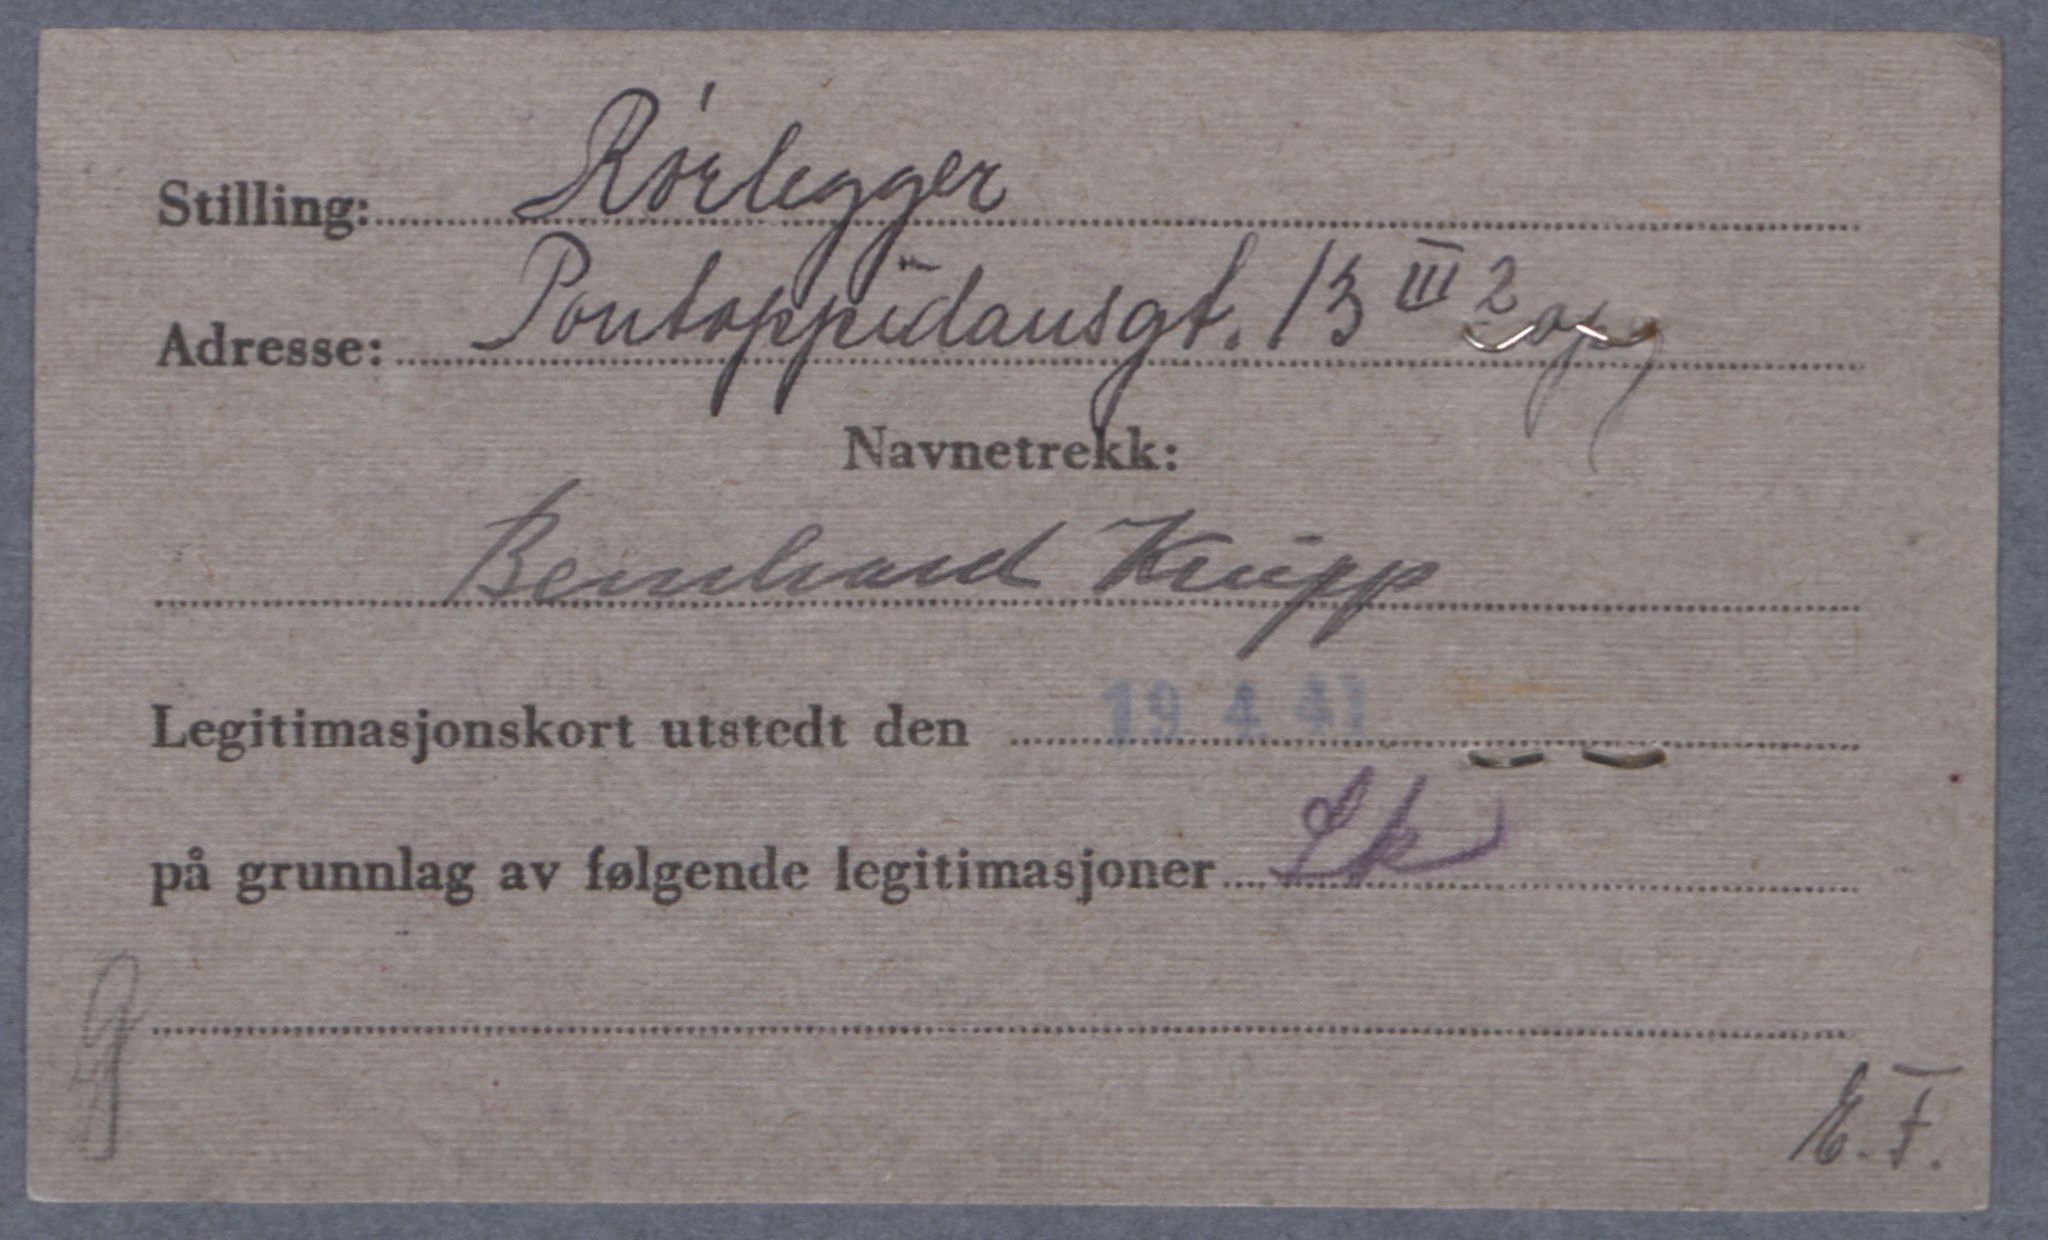 Stilling: Rörlegger
Adresse: Pontoppidansgt. 13 III 2 opg
Navnetrekk:
Bernhard Krupp
Legitimasjonskort utstedt den 19 4 41
på grunnlag av følgende legitimasjoner Lk
G
E.F.